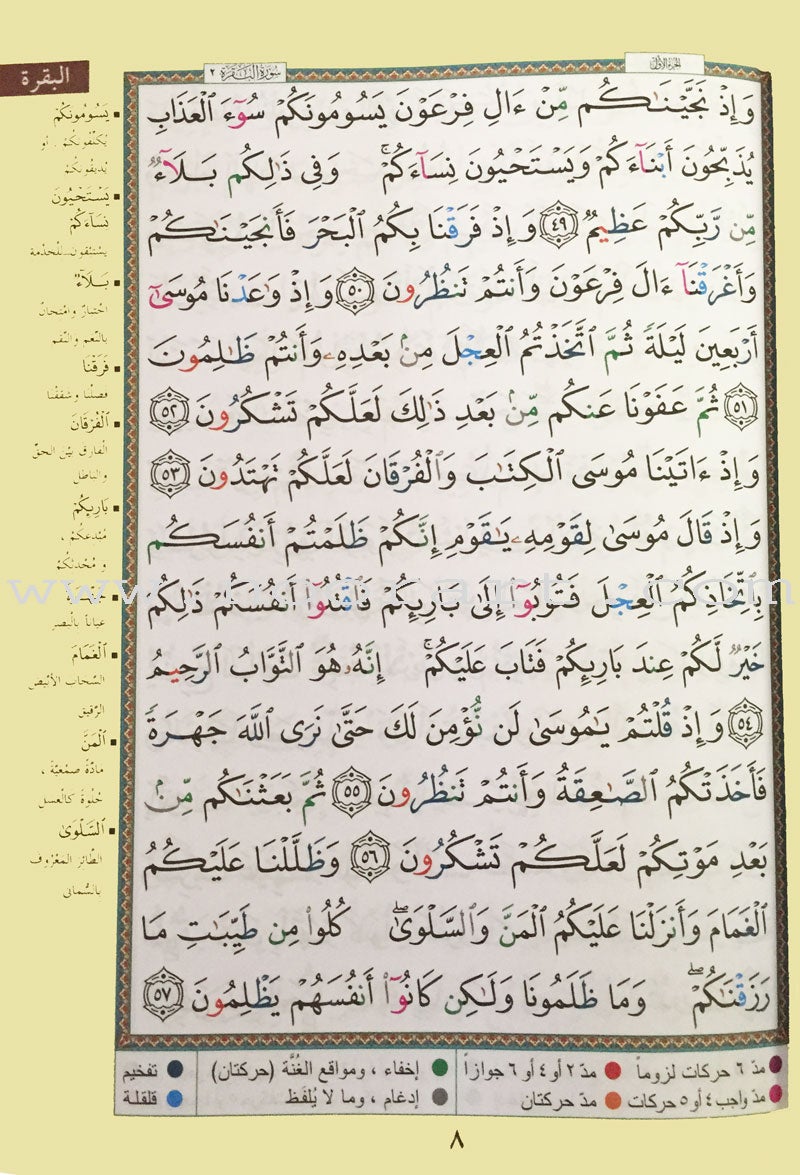 الجزء الأول
سورة البقرة ٢
البقرة
وَإِذْ نَجَّيْنَـٰكُم مِّنْ ءَالِ فِرْعَوْنَ يَسُومُونَكُمْ سُوٓءَ ٱلْعَذَابِ
يُذَبِّحُونَ أَبْنَآءَكُمْ وَيَسْتَحْيُونَ نِسَآءَكُمْ ۚ وَفِى ذَٰلِكُم بَلَآءٌ
مِّن رَّبِّكُمْ عَظِيمٌ ٤٩ وَإِذْ فَرَقْنَا بِكُمُ ٱلْبَحْرَ فَأَنجَيْنَـٰكُمْ
وَأَغْرَقْنَآ ءَالَ فِرْعَوْنَ وَأَنتُمْ تَنظُرُونَ ٥٠ وَإِذْ وَٰعَدْنَا مُوسَىٰٓ
أَرْبَعِينَ لَيْلَةً ثُمَّ ٱتَّخَذْتُمُ ٱلْعِجْلَ مِنۢ بَعْدِهِۦ وَأَنتُمْ ظَـٰلِمُونَ
٥١ ثُمَّ عَفَوْنَا عَنكُم مِّنۢ بَعْدِ ذَٰلِكَ لَعَلَّكُمْ تَشْكُرُونَ ٥٢
وَإِذْ ءَاتَيْنَا مُوسَى ٱلْكِتَـٰبَ وَٱلْفُرْقَانَ لَعَلَّكُمْ تَهْتَدُونَ ٥٣
وَإِذْ قَالَ مُوسَىٰ لِقَوْمِهِۦ يَـٰقَوْمِ إِنَّكُمْ ظَلَمْتُمْ أَنفُسَكُم
بِٱتِّخَاذِكُمُ ٱلْعِجْلَ فَتُوبُوٓا۟ إِلَىٰ بَارِئِكُمْ فَٱقْتُلُوٓا۟ أَنفُسَكُمْ ذَٰلِكُمْ
خَيْرٌ لَّكُمْ عِندَ بَارِئِكُمْ فَتَابَ عَلَيْكُمْ ۚ إِنَّهُۥ هُوَ ٱلتَّوَّابُ ٱلرَّحِيمُ
٥٤ وَإِذْ قُلْتُمْ يَـٰمُوسَىٰ لَن نُّؤْمِنَ لَكَ حَتَّىٰ نَرَى ٱللَّهَ جَهْرَةً
فَأَخَذَتْكُمُ ٱلصَّـٰعِقَةُ وَأَنتُمْ تَنظُرُونَ ٥٥ ثُمَّ بَعَثْنَـٰكُم مِّنۢ
بَعْدِ مَوْتِكُمْ لَعَلَّكُمْ تَشْكُرُونَ ٥٦ وَظَلَّلْنَا عَلَيْكُمُ
ٱلْغَمَامَ وَأَنزَلْنَا عَلَيْكُمُ ٱلْمَنَّ وَٱلسَّلْوَىٰ ۖ كُلُوا۟ مِن طَيِّبَـٰتِ مَا
رَزَقْنَـٰكُمْ ۖ وَمَا ظَلَمُونَا وَلَـٰكِن كَانُوٓا۟ أَنفُسَهُمْ يَظْلِمُونَ ٥٧
يَسُومُونَكُمْ
يُكَلِّفُونَكُمْ ، أو
يُذِيقُونَكُمْ
يَسْتَحْيُونَ
نِسَآءَكُمْ
يستبقون للخدمة
بَلَآءٌ
اختبارٌ وامتحانٌ
بالنِّعم والنِّقم
فَرَقْنَا
فصلنا وشققنا
ٱلْفُرْقَانَ
الفارق بَيْن الحقِّ
والباطل
بَارِئِكُمْ
مُبْدعكُمْ ،
ومُحْدثكُمْ
عياناً بالبصر
ٱلْغَمَامَ
السَّحاب الأبْيض
الرَّقيق
ٱلْمَنَّ
مادّةً صمْغيَّةً ،
حُلْوةً كالعسل
ٱلسَّلْوَىٰ
الطَّائر المَعْرُوف
بالسُّمانى
مدّ ٦ حركات لزوماً مدّ ٢ أو ٤ أو ٦ جوازاً إخفاء ، ومواقع الغُنَّة (حركتان) تفخيم
مدّ واجب ٤ أو ٥ حركات مدّ حركتان إدغام ، وما لا يُلفَظ قلقلة
٨